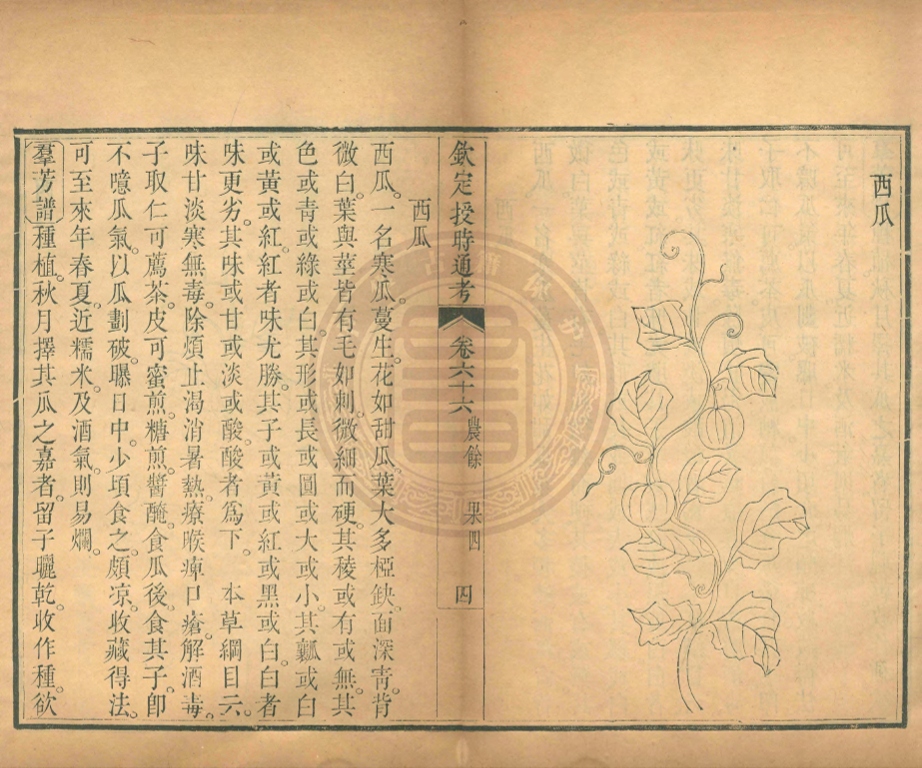 西瓜
欽定授時通考 卷六十六 農餘 果四 四
西瓜
西瓜。一名寒瓜。蔓生。花如甜瓜。葉大多椏缺。面深青。背
微白。葉與莖皆有毛如刺。微細而硬。其稜或有或無。其
色或青或綠或白。其形或長或圓或大或小。其瓤或白
或黃或紅。紅者味尤勝。其子或黃或紅或黑或白。白者
味更劣。其味或甘或淡或酸。酸者為下。 本草綱目云。
味甘淡寒無毒。除煩止渴。消暑熱。療喉痺口瘡。解酒毒。
子取仁可薦茶。皮可蜜煎糖煎醬醃。食瓜後食其子。即
不噫瓜氣。以瓜劃破。曝日中。少頃食之。頗涼。收藏得法。
可至來年春夏。近糯米及酒氣。則易爛。
羣芳譜種植。秋月擇其瓜之嘉者。留子曬乾。收作種。欲